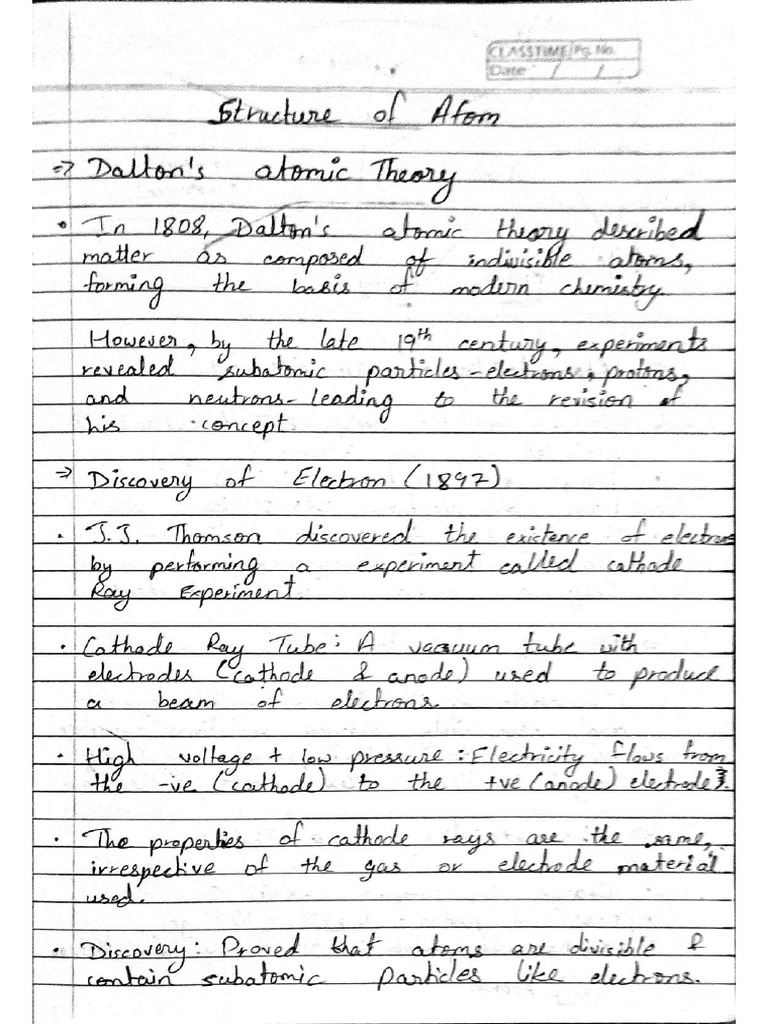 CLASSTIME Pg. No.
Date / /
Structure of Atom
=> Dalton's atomic Theory
• In 1808, Dalton's atomic theory described
matter as composed of indivisible atoms,
forming the basis of modern chemistry.
However, by the late 19th century, experiments
revealed subatomic particles - electrons, protons,
and neutrons - leading to the revision of
his concept.
=> Discovery of Electron (1897)
• J.J. Thomson discovered the existence of electrons
by performing a experiment called cathode
Ray Experiment.
• Cathode Ray Tube: A vacuum tube with
electrodes (cathode & anode) used to produce
a beam of electrons.
• High voltage + low pressure: Electricity flows from
the -ve (cathode) to the +ve (anode) electrode.
• The properties of cathode rays are the same,
irrespective of the gas or electrode material
used.
• Discovery: Proved that atoms are divisible &
contain subatomic particles like electrons.